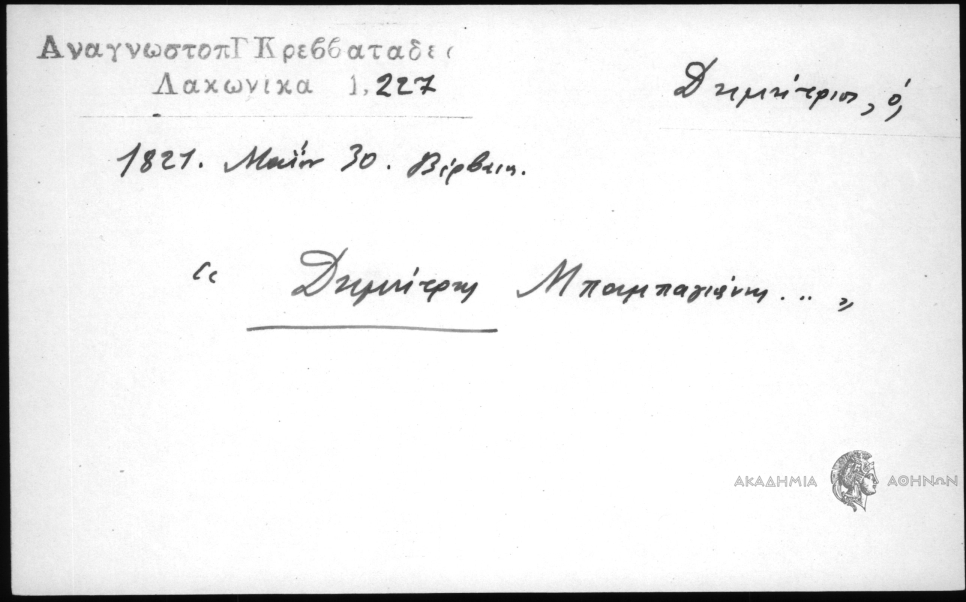 ΑναγνωστοπΓ Κρεββαταδες
Λακωνικα 1, 227
Δημήτριος, ὁ,
1821. Μαΐου 30. Βέρβενα.
“ Δημήτρης Μπαμπαγιάννης ... „
ΑΚΑΔΗΜΙΑ ΑΘΗΝΩΝ